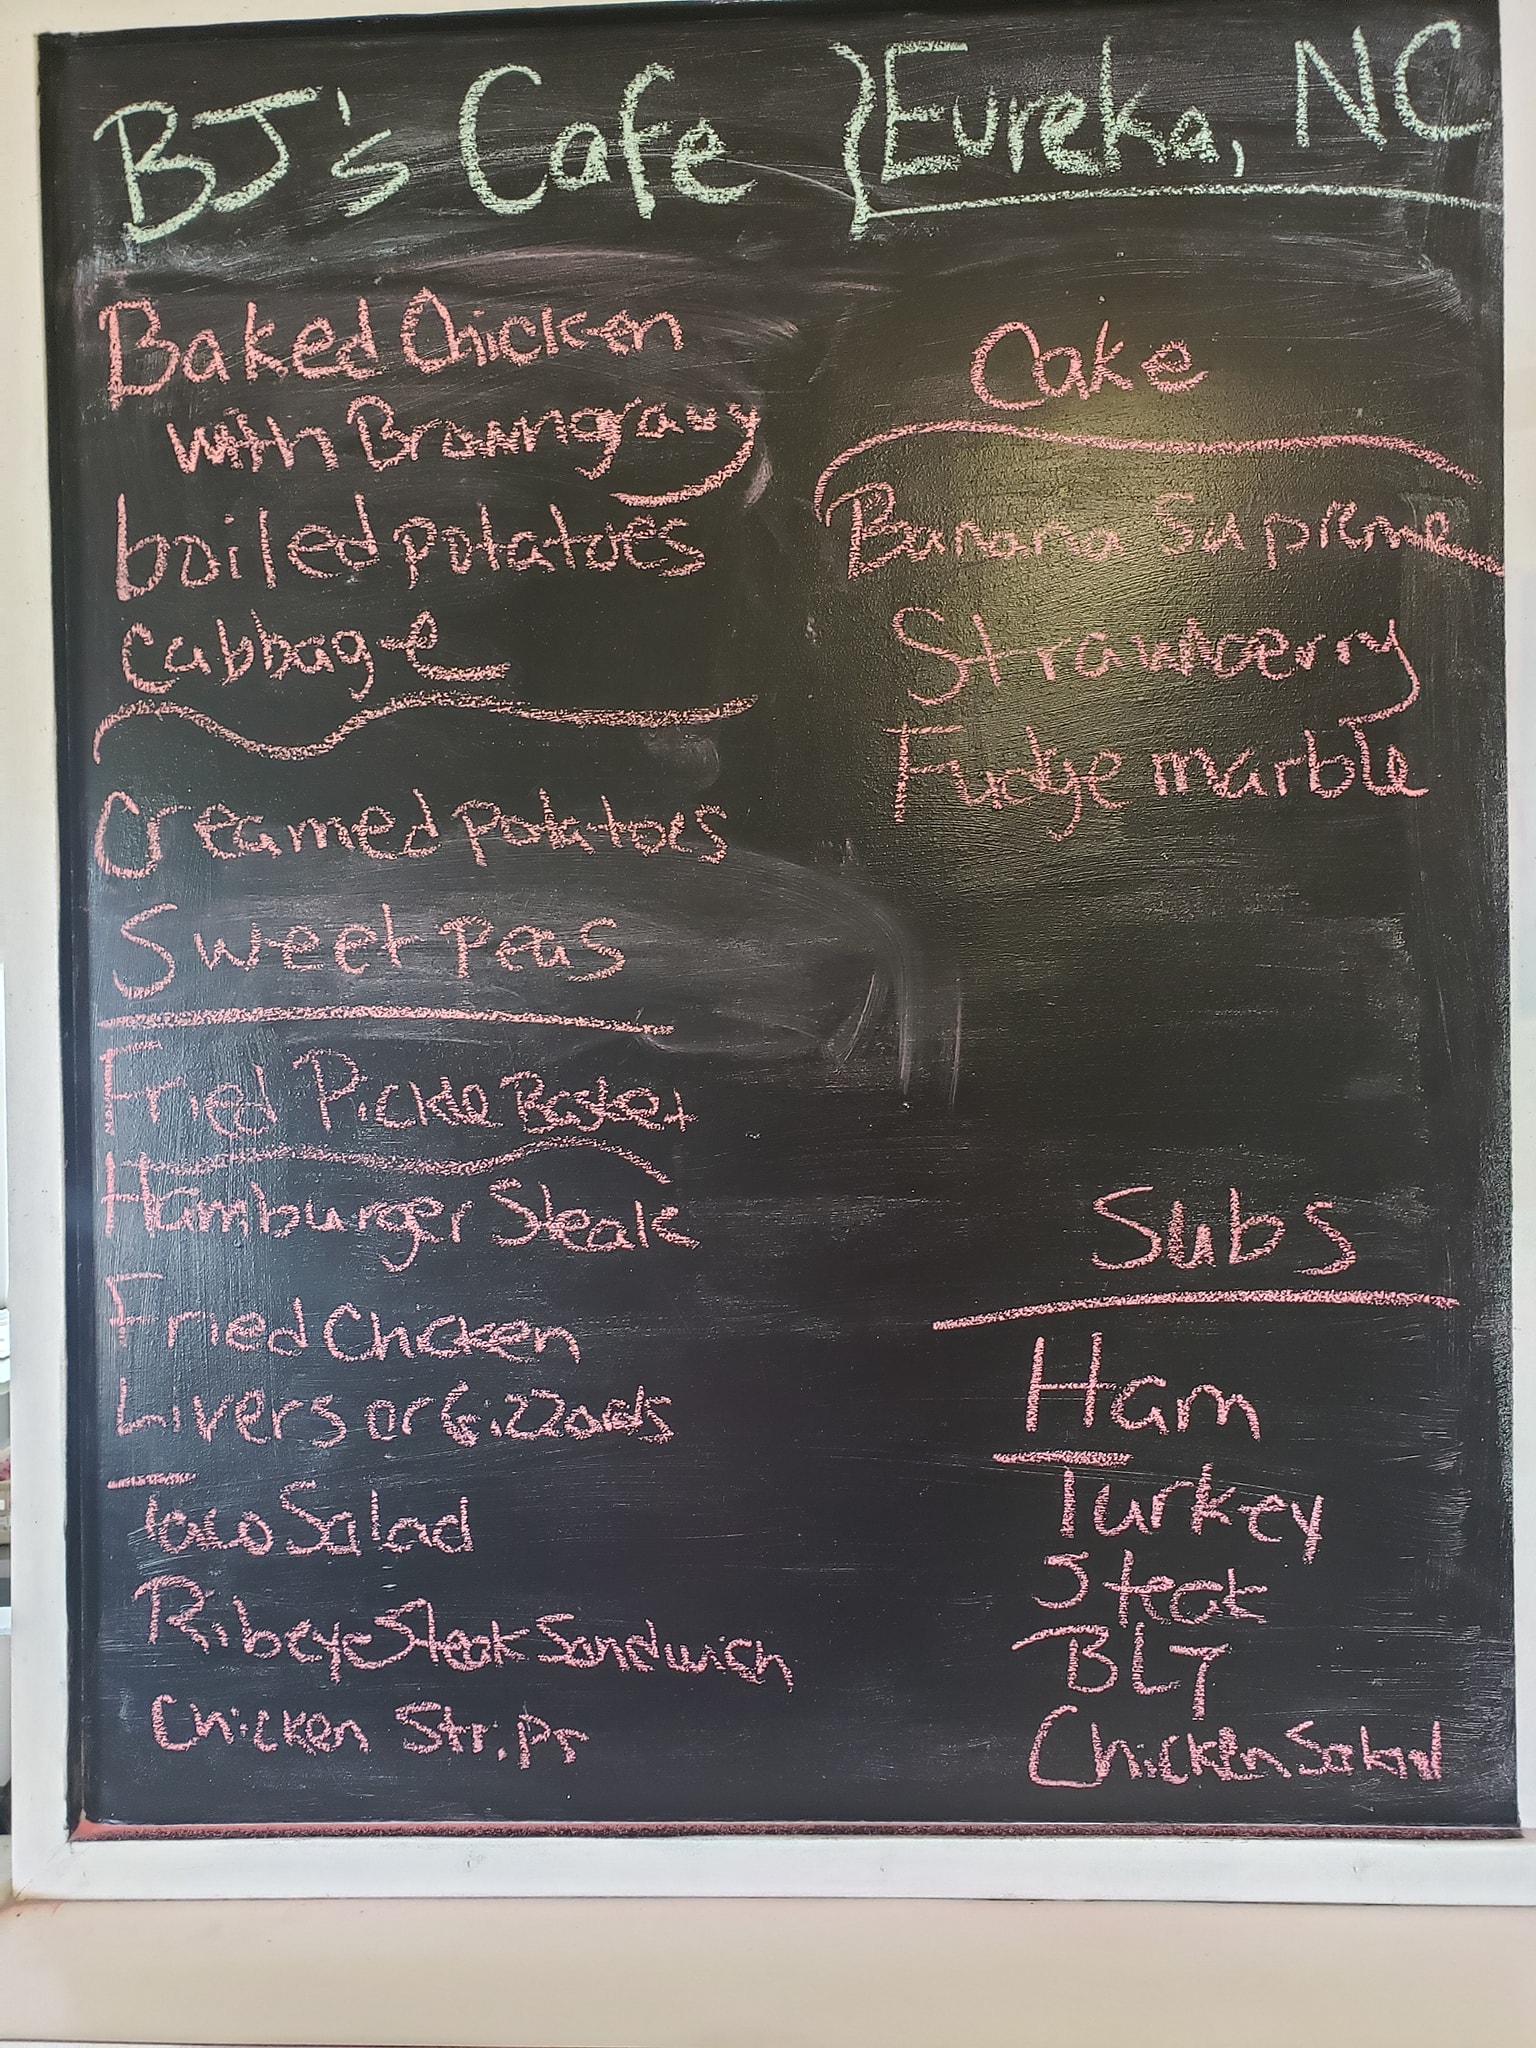 BJ's Cafe } Eureka, NC
Baked Chicken
with Brown gravy
boiled potatoes
cabbage
Creamed potatoes
Sweet peas
Fried Pickle Basket
Hamburger Steak
Fried Chicken
Livers or Gizzards
Taco Salad
Ribeye Steak Sandwich
Chicken Strips
Cake
Banana Supreme
Strawberry
Fudge marble
Subs
Ham
Turkey
Steak
BLT
Chicken Salad